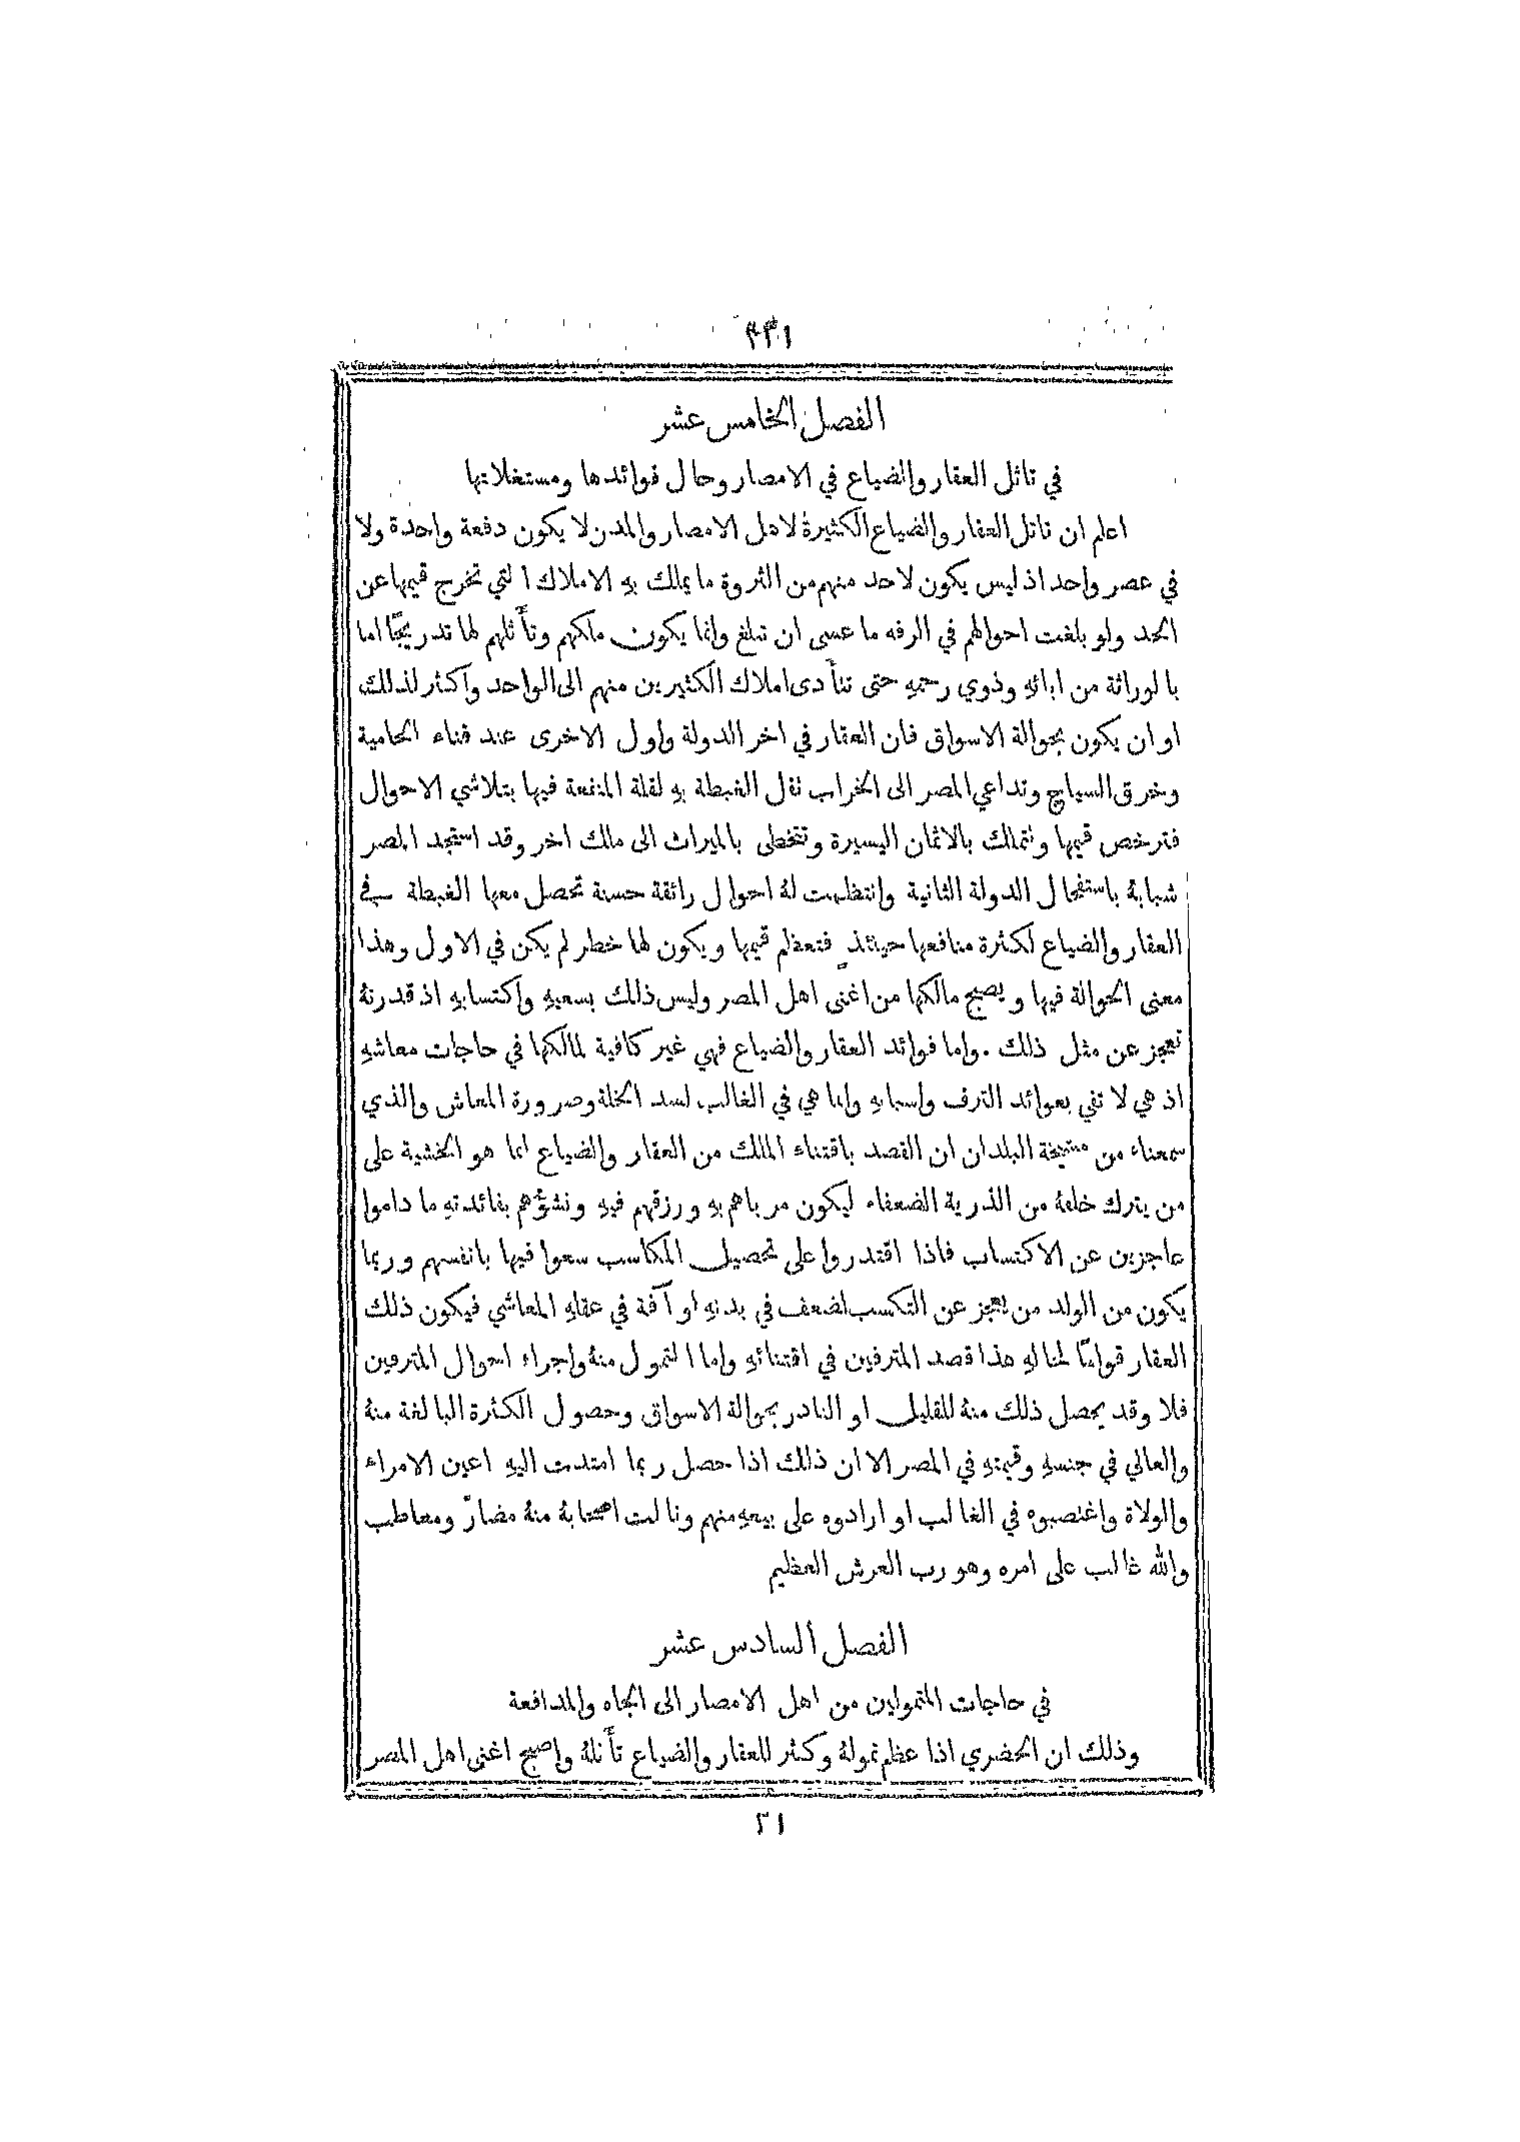 ٣٢١
الفصل الخامس عشر
في تاثل العقار والضياع في الامصار وحال فوائدها ومستغلاتها
اعلم ان تاثل العقار والضياع الكثيرة لاهل الامصار والمدن لا يكون دفعة واحدة ولا
في عصر واحد اذ ليس يكون لاحد منهم من الثروة ما يملك بهِ الاملاك التي تخرج قيمها عن
الحد ولو بلغت احوالهم في الرفه ما عسى ان تبلغ وانما يكون ملكهم وتأثلهم لها تدريجًا اما
بالوراثة من ابائهِ وذوي رحمهِ حتى تتأدى املاك الكثيرين منهم الى الواحد واكثر لذلك
او ان يكون بحوالة الاسواق فان العقار في اخر الدولة واول الاخرى عند فناء الحامية
وخرق السياج وتداعي المصر الى الخراب تقل الغبطة بهِ لقلة المنفعة فيها بتلاشي الاحوال
فترخص قيمها وتتملك بالاثمان اليسيرة وتتخطى بالميراث الى ملك اخر وقد استجد المصر
شبابهُ باستفحال الدولة الثانية وانتظمت لهُ احوال رائقة حسنة تحصل معها الغبطة في
العقار والضياع لكثرة منافعها حينئذٍ فتعظم قيمها ويكون لها خطر لم يكن في الاول وهذا
معنى الحوالة فيها ويصبح مالكها من اغنى اهل المصر وليس ذلك بسعيهِ واكتسابهِ اذ قدرتهُ
تعجز عن مثل ذلك . واما فوائد العقار والضياع فهي غير كافية لمالكها في حاجات معاشهِ
اذ هي لا تفي بعوائد الترف واسبابهِ وانما هي في الغالب لسد الخلة وضرورة المعاش والذي
سمعناه من مشيخة البلدان ان القصد باقتناء الملك من العقار والضياع انما هو الخشية على
من يترك خلفهُ من الذرية الضعفاء ليكون مرباهم بهِ ورزقهم فيهِ ونشؤهم بفائدتهِ ما داموا
عاجزين عن الاكتساب فاذا اقتدروا على تحصيل المكاسب سعوا فيها بانفسهم وربما
يكون من الولد من يعجز عن التكسب لضعف في بدنهِ او آفة في عقلهِ المعاشي فيكون ذلك
العقار قوامًا لحالهِ هذا قصد المترفين في اقتنائهِ واما التمول منهُ واجراء احوال المترفين
فلا وقد يحصل ذلك منهُ للقليل او النادر بحوالة الاسواق وحصول الكثرة البالغة منهُ
والعالي في جنسهِ وقيمتهِ في المصر الا ان ذلك اذا حصل ربما امتدت اليهِ اعين الامراء
والولاة واغتصبوه في الغالب او ارادوه على بيعهِ منهم ونالت اصحابهُ منهُ مضارّ ومعاطب
والله غالب على امره وهو رب العرش العظيم
الفصل السادس عشر
في حاجات المتمولين من اهل الامصار الى الجاه والمدافعة
وذلك ان الحضري اذا عظم تمولهُ وكثر للعقار والضياع تأثلهُ واصبح اغنى اهل المصر
٢١